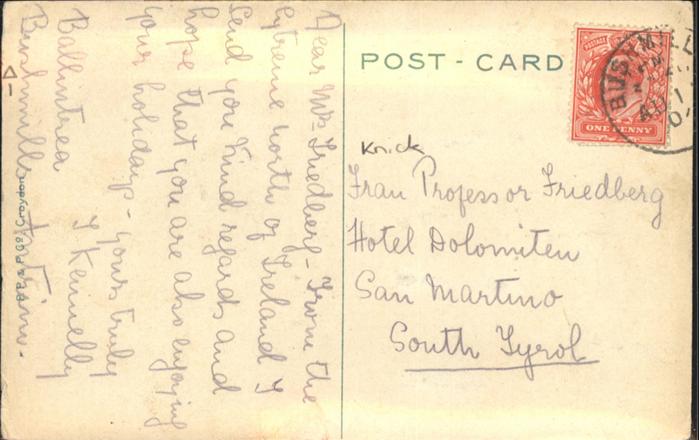 Dear Mrs Friedberg - From the
extreme north of Ireland I
send you kind regards and
hope that you are also enjoying
your holidays - yours truly
J Kennelly
Ballintrea
Bushmills Antrim.
POST - CARD
POSTAGE
ONE PENNY
BUSHMILLS
AU 1
Knick
Frau Professor Friedberg
Hotel Dolomiten
San Martino
South Tyrol
Croydon